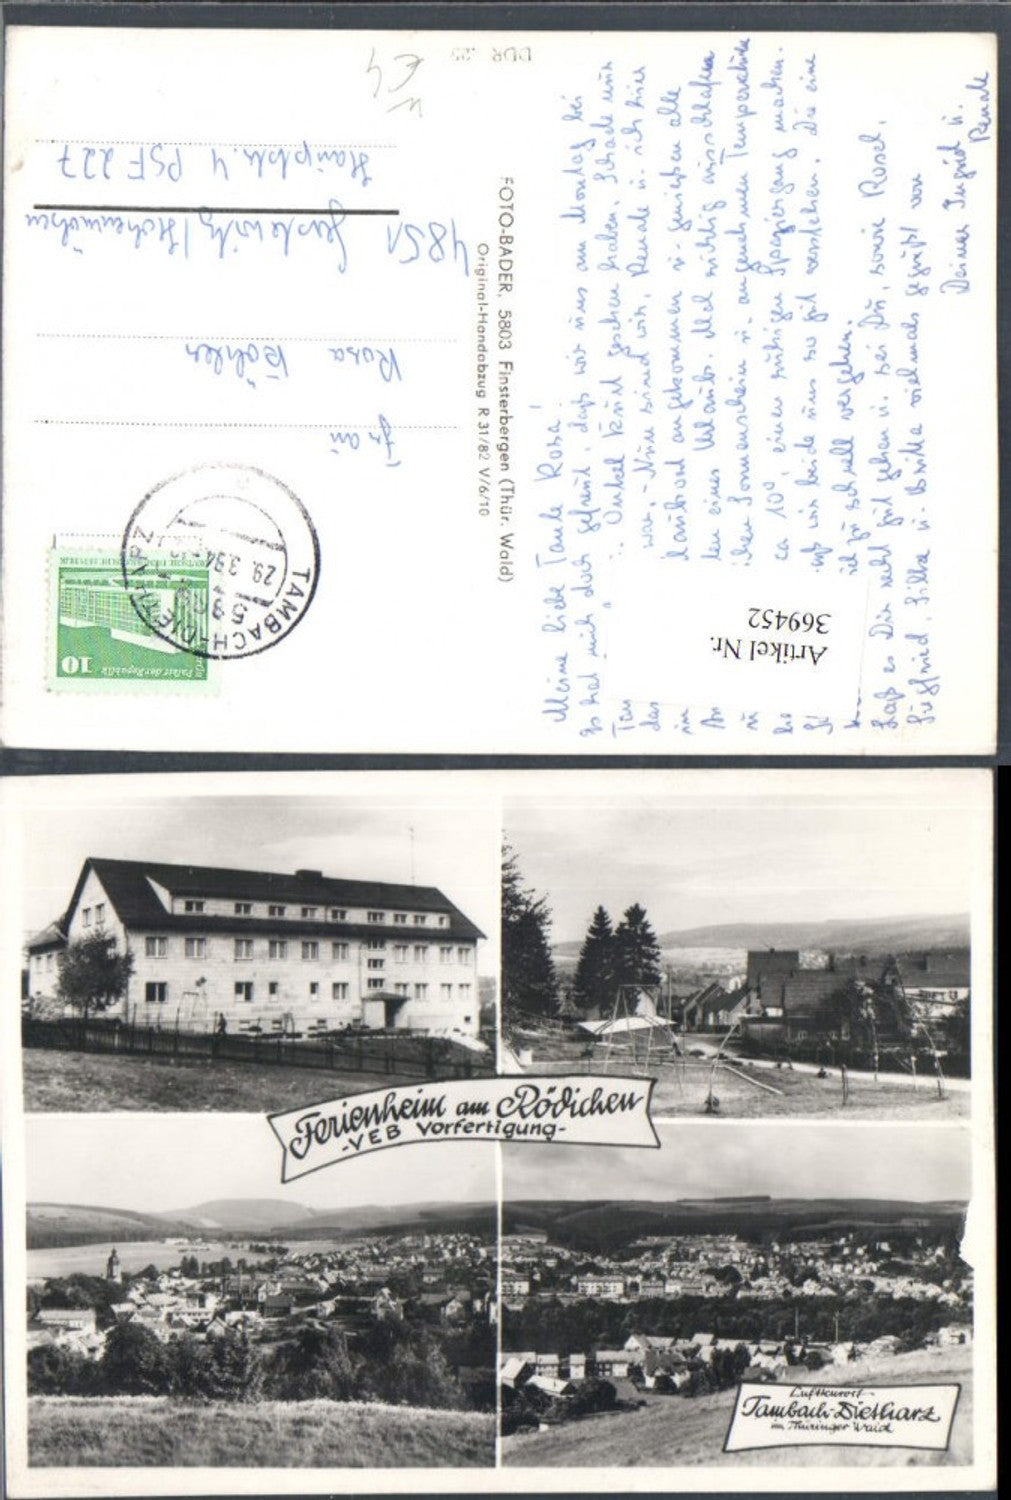 DDR 25
€4
FOTO-BADER, 5803 Finsterbergen (Thür. Wald)
Original-Handabzug R 31/82 V/6/10
Frau
Rosa Köhler
4851
Hauptstr. 4 PSF 227
10
Palast der Republik
TAMBACH-DIETHARZ
29.3.94
Artikel Nr.
369452
Meine liebe Tante Rosa!
Es hat mich doch gefreut, daß wir uns am Montag bei
Onkel Knut gesehen haben. Schade nur
das war. - Nun sind wir, Renate u. ich hier
in Urlaub angekommen u. genießen alle
einen Urlaub. Mal richtig ausschlafen
u. Sonnenschein u. angenehmen Temperaturen
ca 10°, einen ruhigen Spaziergang machen.
wir beide uns so gut verstehen. Die eine
viel zu schnell vergehen.
Laß es Dir recht gut gehen u. sei Du, sowie Rosel,
Siegfried, Silke u. vielmals gegrüßt von
Deiner Ingrid u.
Renate
Ferienheim am Rödichen
-VEB Vorfertigung-
Luftkurort
Tambach-Dietharz
im Thüringer Wald